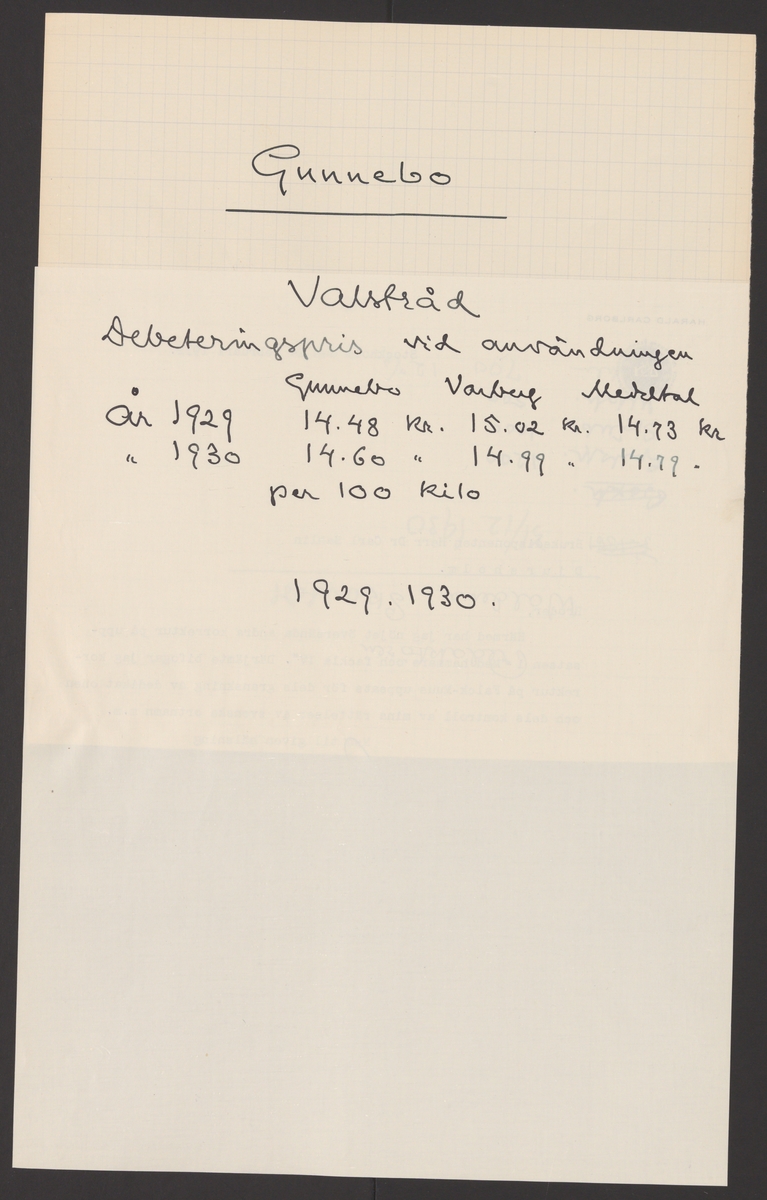 Gunnebo
Valstråd
Debeteringspris vid användningen
Gunnebo Varberg Medeltal
År 1929 14.48 kr. 15.02 kr. 14.73 kr
" 1930 14.60 " 14.99 " 14.79 "
per 100 kilo
1929. 1930.